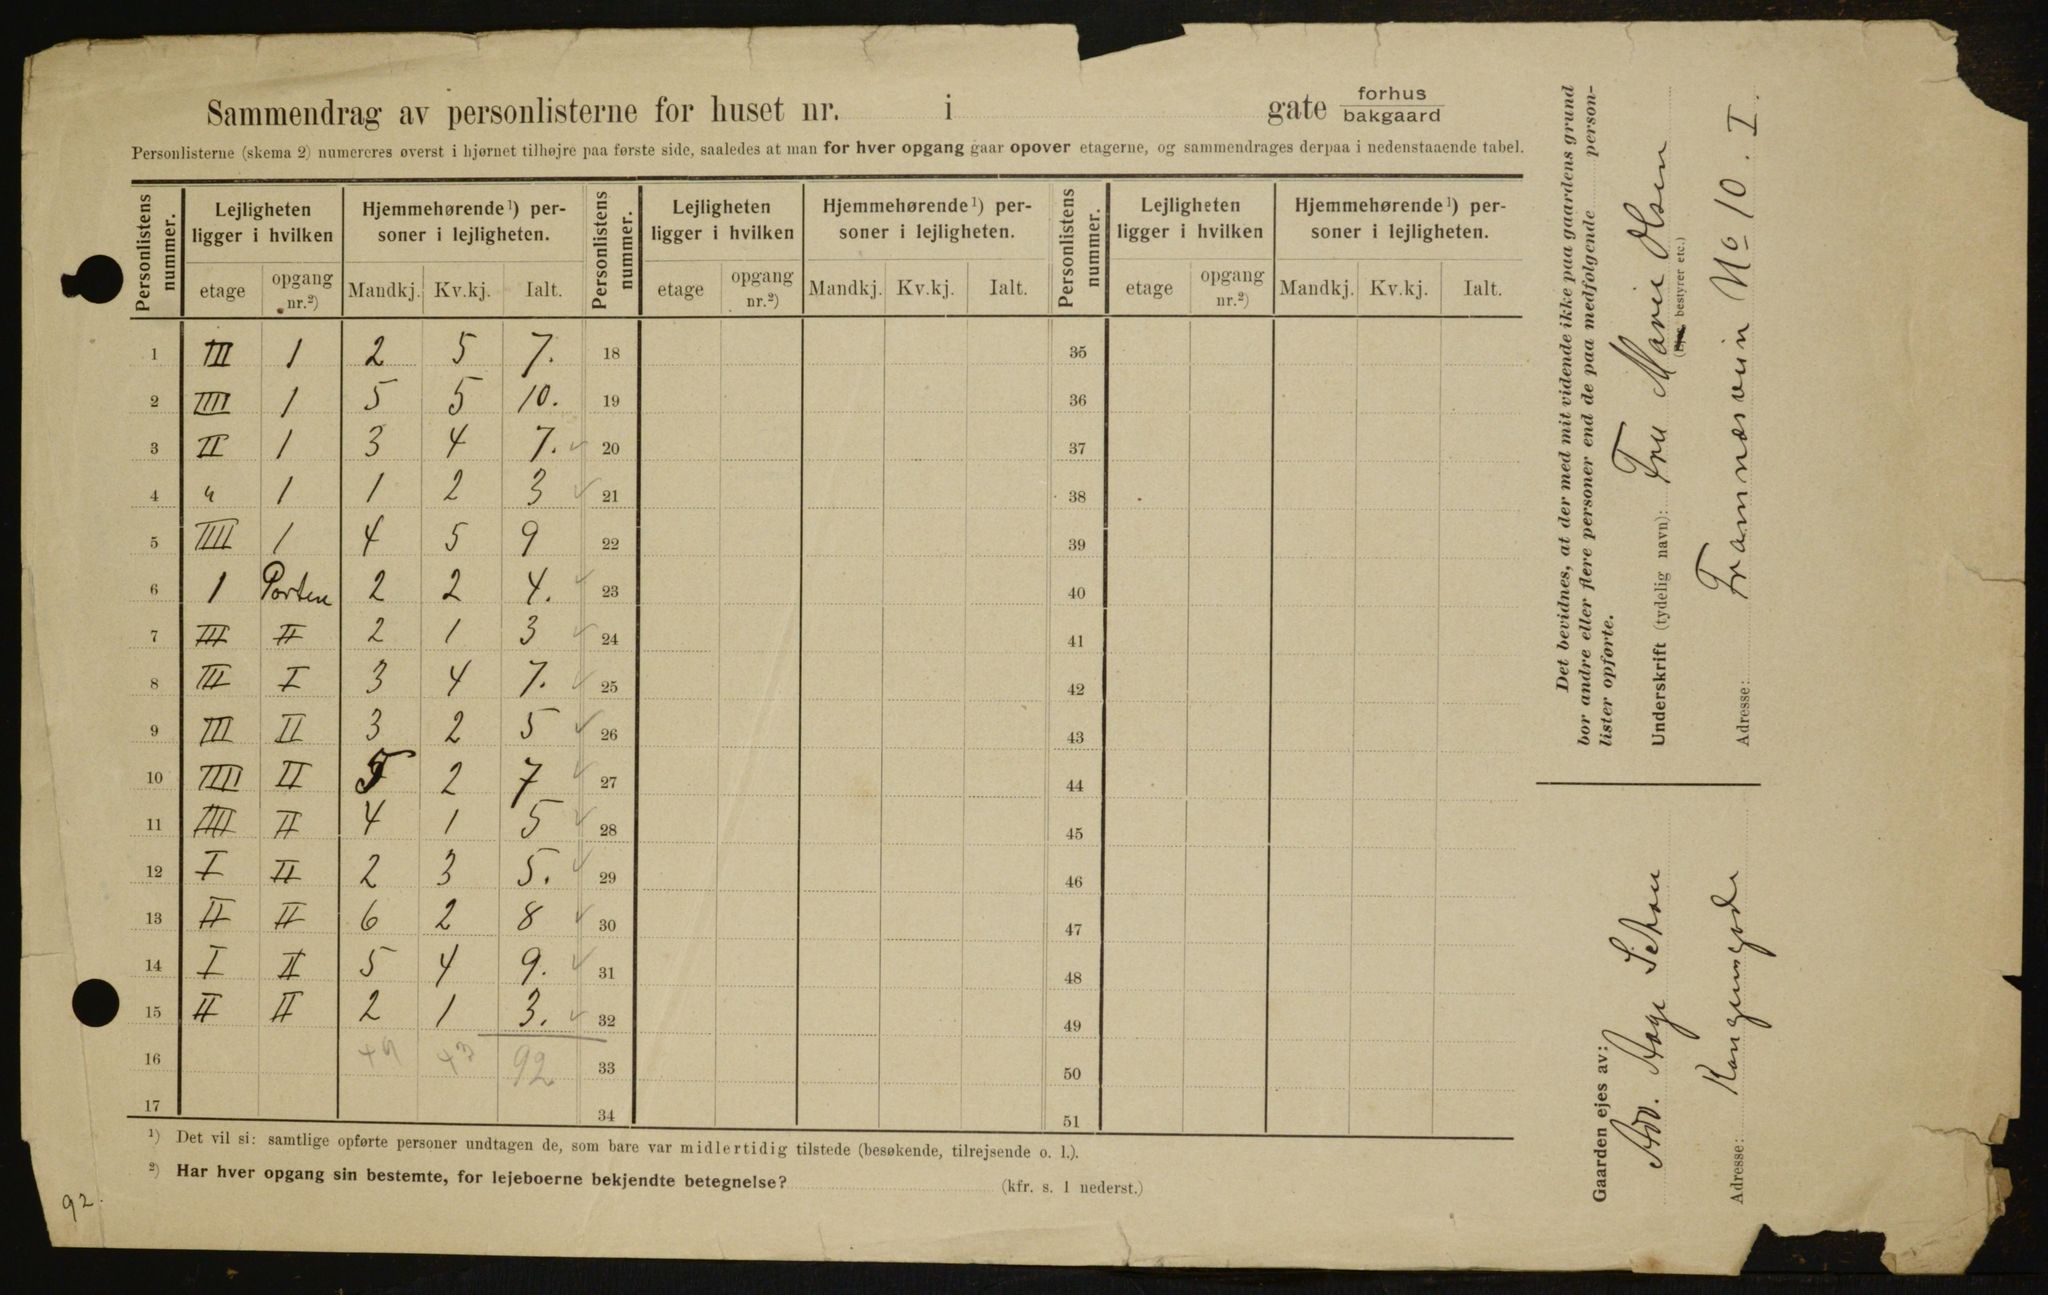 Sammendrag av personlisterne for huset nr. i gate forhus / bakgaard
Personlisterne (skema 2) numereres øverst i hjørnet tilhøjre paa første side, saaledes at man for hver opgang gaar opover etagerne, og sammendrages derpaa i nedenstaaende tabel.
Personlistens nummer. Lejligheten ligger i hvilken Hjemmehørende¹) personer i lejligheten. Personlistens nummer. Lejligheten ligger i hvilken Hjemmehørende¹) personer i lejligheten. Personlistens nummer. Lejligheten ligger i hvilken Hjemmehørende¹) personer i lejligheten.
etage opgang nr.²) Mandkj. Kv.kj. Ialt. etage opgang nr.²) Mandkj. Kv.kj. Ialt. etage opgang nr.²) Mandkj. Kv.kj. Ialt.
1 III 1 2 5 7. 18 35
2 IIII 1 5 5 10. 19 36
3 II 1 3 4 7. 20 37
4 " 1 1 2 3 21 38
5 IIII 1 4 5 9 22 39
6 1 Porten 2 2 4. 23 40
7 III II 2 1 3 24 41
8 III I 3 4 7. 25 42
9 III II 3 2 5 26 43
10 IIII II 5 2 7 27 44
11 IIII II 4 1 5 28 45
12 I II 2 3 5. 29 46
13 II II 6 2 8 30 47
14 I II 5 4 9. 31 48
15 II II 2 1 3. 32 49
16 49 43 92 33 50
17 34 51
¹) Det vil si: samtlige opførte personer undtagen de, som bare var midlertidig tilstede (besøkende, tilrejsende o. l.).
²) Har hver opgang sin bestemte, for lejeboerne bekjendte betegnelse? (kfr. s. 1 nederst.)
92.
Det bevidnes, at der med mit vidende ikke paa gaardens grund
bor andre eller flere personer end de paa medfølgende personlister opførte.
Underskrift (tydelig navn): Fru Marie Olsen
bestyrer etc.)
Adresse: Framnæsvein No 10. I.
Gaarden ejes av:
Adv. Aage Schou
Adresse: Kongensgade